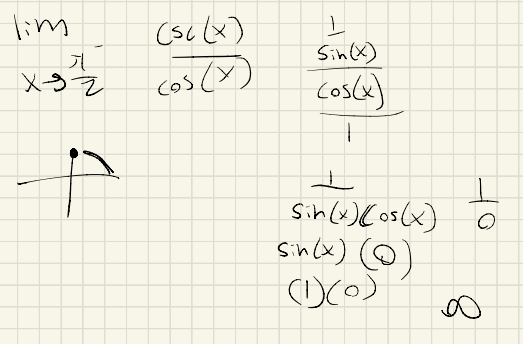 lim x→π/2⁻ csc(x)/cos(x)
1/sin(x)
cos(x)/1
1/sin(x)cos(x)
1/0
sin(x)(0)
(1)(0)
∞